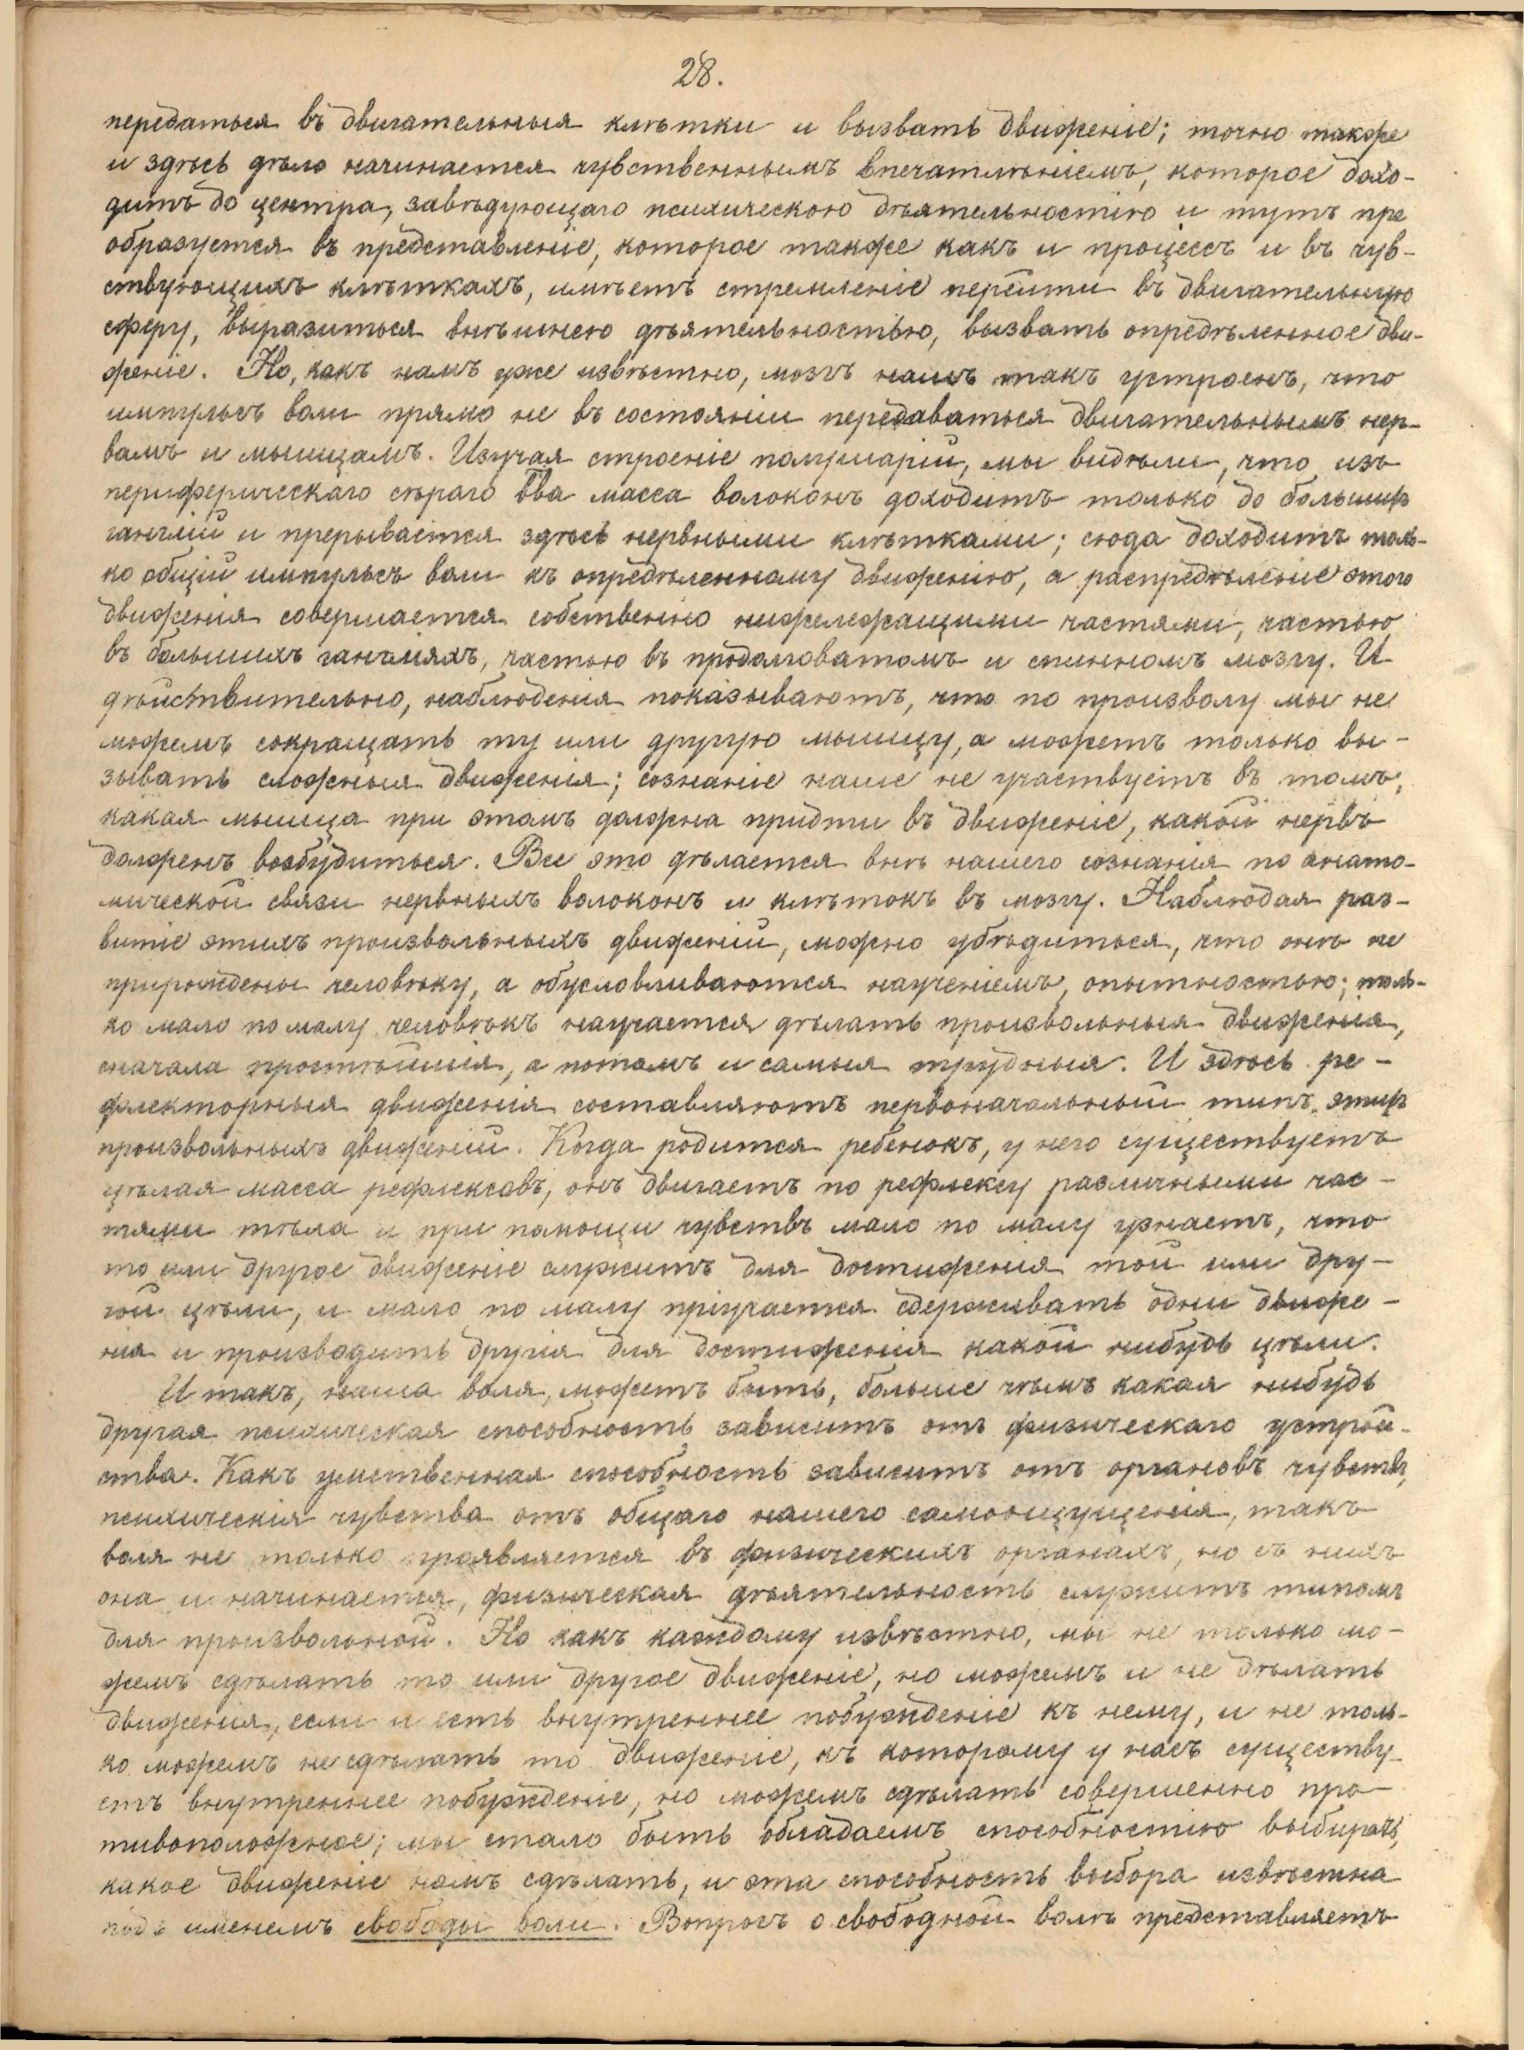 28.
передаться въ двигательныя клѣтки и вызвать движеніе; точно также
и здѣсь дѣло начинается чувственнымъ впечатлѣніемъ, которое дохо-
дитъ до центра, завѣдующаго психическою дѣятельностію и тутъ пре
образуется въ представленіе, которое также какъ и процессъ и въ чув-
ствующихъ клѣткахъ, имѣетъ стремленіе перейти въ двигательную
сферу, выразиться внѣшнею дѣятельностью, вызвать опредѣленное дви-
женіе. Но, какъ намъ уже извѣстно, мозгъ нашъ такъ устроенъ, что
импульсъ воли прямо не въ состояніи передаваться двигательнымъ нер-
вамъ и мышцамъ. Изучая строеніе полушарій, мы видѣли, что изъ
периферическаго сѣраго в-ва масса волоконъ доходитъ только до большихъ
ганглій и прерывается здѣсь нервными клѣтками; сюда доходитъ толь-
ко общій импульсъ воли къ опредѣленному движенію, а распредѣленіе этого
движенія совершается собственно нижележащими частями, частью
въ большихъ гангліяхъ, частью въ продолговатомъ и спинномъ мозгу. И
дѣйствительно, наблюденія показываютъ, что по произволу мы не
можемъ сокращать ту или другую мышцу, а можетъ только вы-
зывать сложныя движенія; сознаніе наше не участвуетъ въ томъ,
какая мышца при этомъ должна придти въ движеніе, какой нервъ
долженъ возбудиться. Все это дѣлается внѣ нашего сознанія по анато-
мической связи нервныхъ волоконъ и клѣтокъ въ мозгу. Наблюдая раз-
витіе этихъ произвольныхъ движеній, можно убѣдиться, что онѣ не
прирождены человѣку, а обусловливаются наученіемъ, опытностью; толь-
ко мало по малу человѣкъ научается дѣлать произвольныя движенія,
сначала простѣйшія, а потомъ и самыя трудныя. И здѣсь ре-
флекторныя движенія составляютъ первоначальный типъ этихъ
произвольныхъ движеній. Когда родится ребенокъ, у него существуетъ
цѣлая масса рефлексовъ, онъ двигаетъ по рефлексу различными час-
тями тѣла и при помощи чувствъ мало по малу узнаетъ, что
то или другое движеніе служитъ для достиженія той или дру-
гой цѣли, и мало по малу пріучается сдерживать одни движе-
нія и производить другія для достиженія какой нибудь цѣли.
И такъ, наша воля, можетъ быть, больше чѣмъ какая нибудь
другая психическая способность зависитъ отъ физическаго устрой-
ства. Какъ умственная способность зависитъ отъ органовъ чувствъ,
психическія чувства отъ общаго нашего самоощущенія, такъ
воля не только проявляется въ физическихъ органахъ, но съ нихъ
она и начинается, физическая дѣятельность служитъ типомъ
для произвольной. Но какъ каждому извѣстно, мы не только мо-
жемъ сдѣлать то или другое движеніе, но можемъ и не дѣлать
движенія, если и есть внутреннее побужденіе къ нему, и не толь-
ко можемъ не сдѣлать то движеніе, къ которому у насъ существу-
етъ внутреннее побужденіе, но можемъ сдѣлать совершенно про-
тивоположное; мы стало быть обладаемъ способностію выбирать,
какое движеніе намъ сдѣлать, и эта способность выбора извѣстна
подъ именемъ свободы воли. Вопросъ о свободной волѣ представляетъ